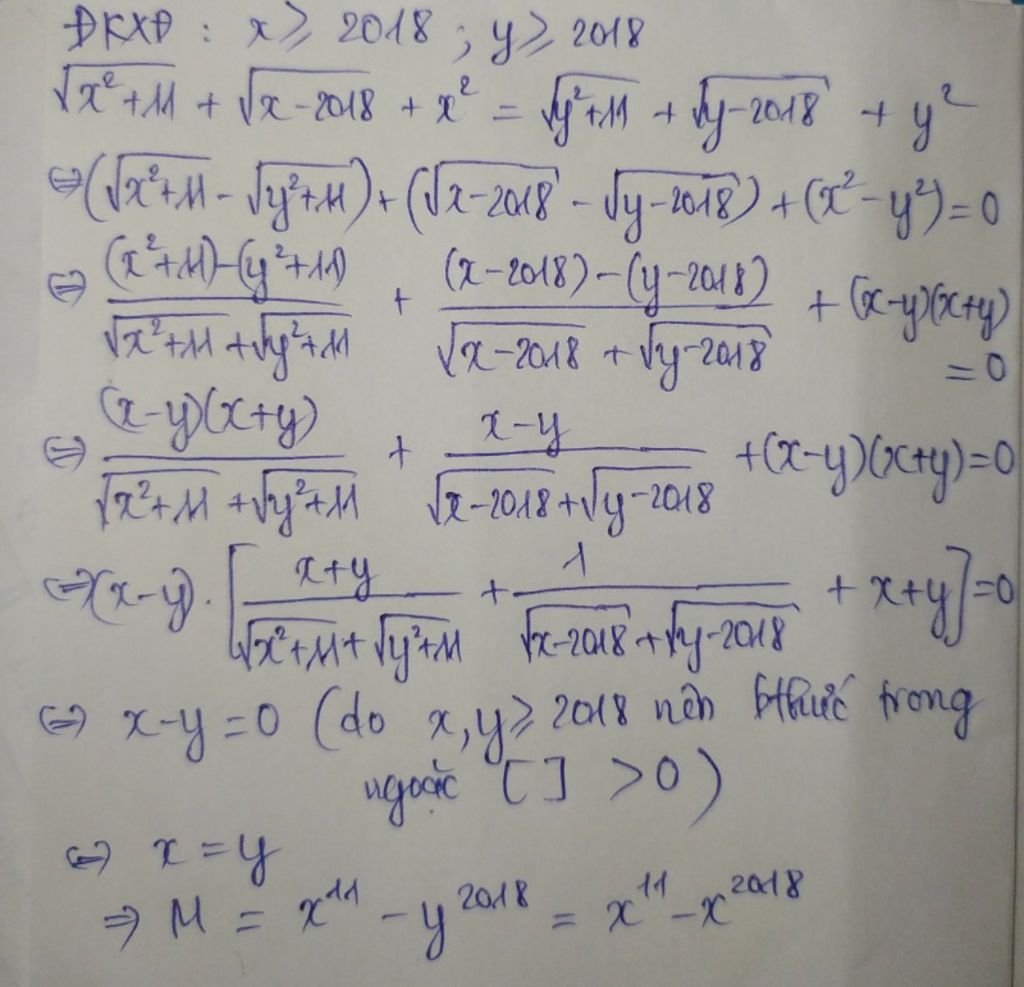 ĐKXĐ : x ≥ 2018 ; y ≥ 2018
√(x²+11) + √(x-2018) + x² = √(y²+11) + √(y-2018) + y²
⇔ (√(x²+11) - √(y²+11)) + (√(x-2018) - √(y-2018)) + (x² - y²) = 0
⇔ ((x²+11)-(y²+11))/(√(x²+11) + √(y²+11)) + ((x-2018)-(y-2018))/(√(x-2018) + √(y-2018)) + (x-y)(x+y)
= 0
⇔ ((x-y)(x+y))/(√(x²+11) + √(y²+11)) + (x-y)/(√(x-2018) + √(y-2018)) + (x-y)(x+y) = 0
⇔ (x-y) . [(x+y)/(√(x²+11) + √(y²+11)) + 1/(√(x-2018) + √(y-2018)) + x+y] = 0
⇔ x-y = 0 (do x, y ≥ 2018 nên bthức trong
ngoặc [ ] > 0)
⇔ x = y
⇒ M = x¹¹ - y²⁰¹⁸ = x¹¹ - x²⁰¹⁸